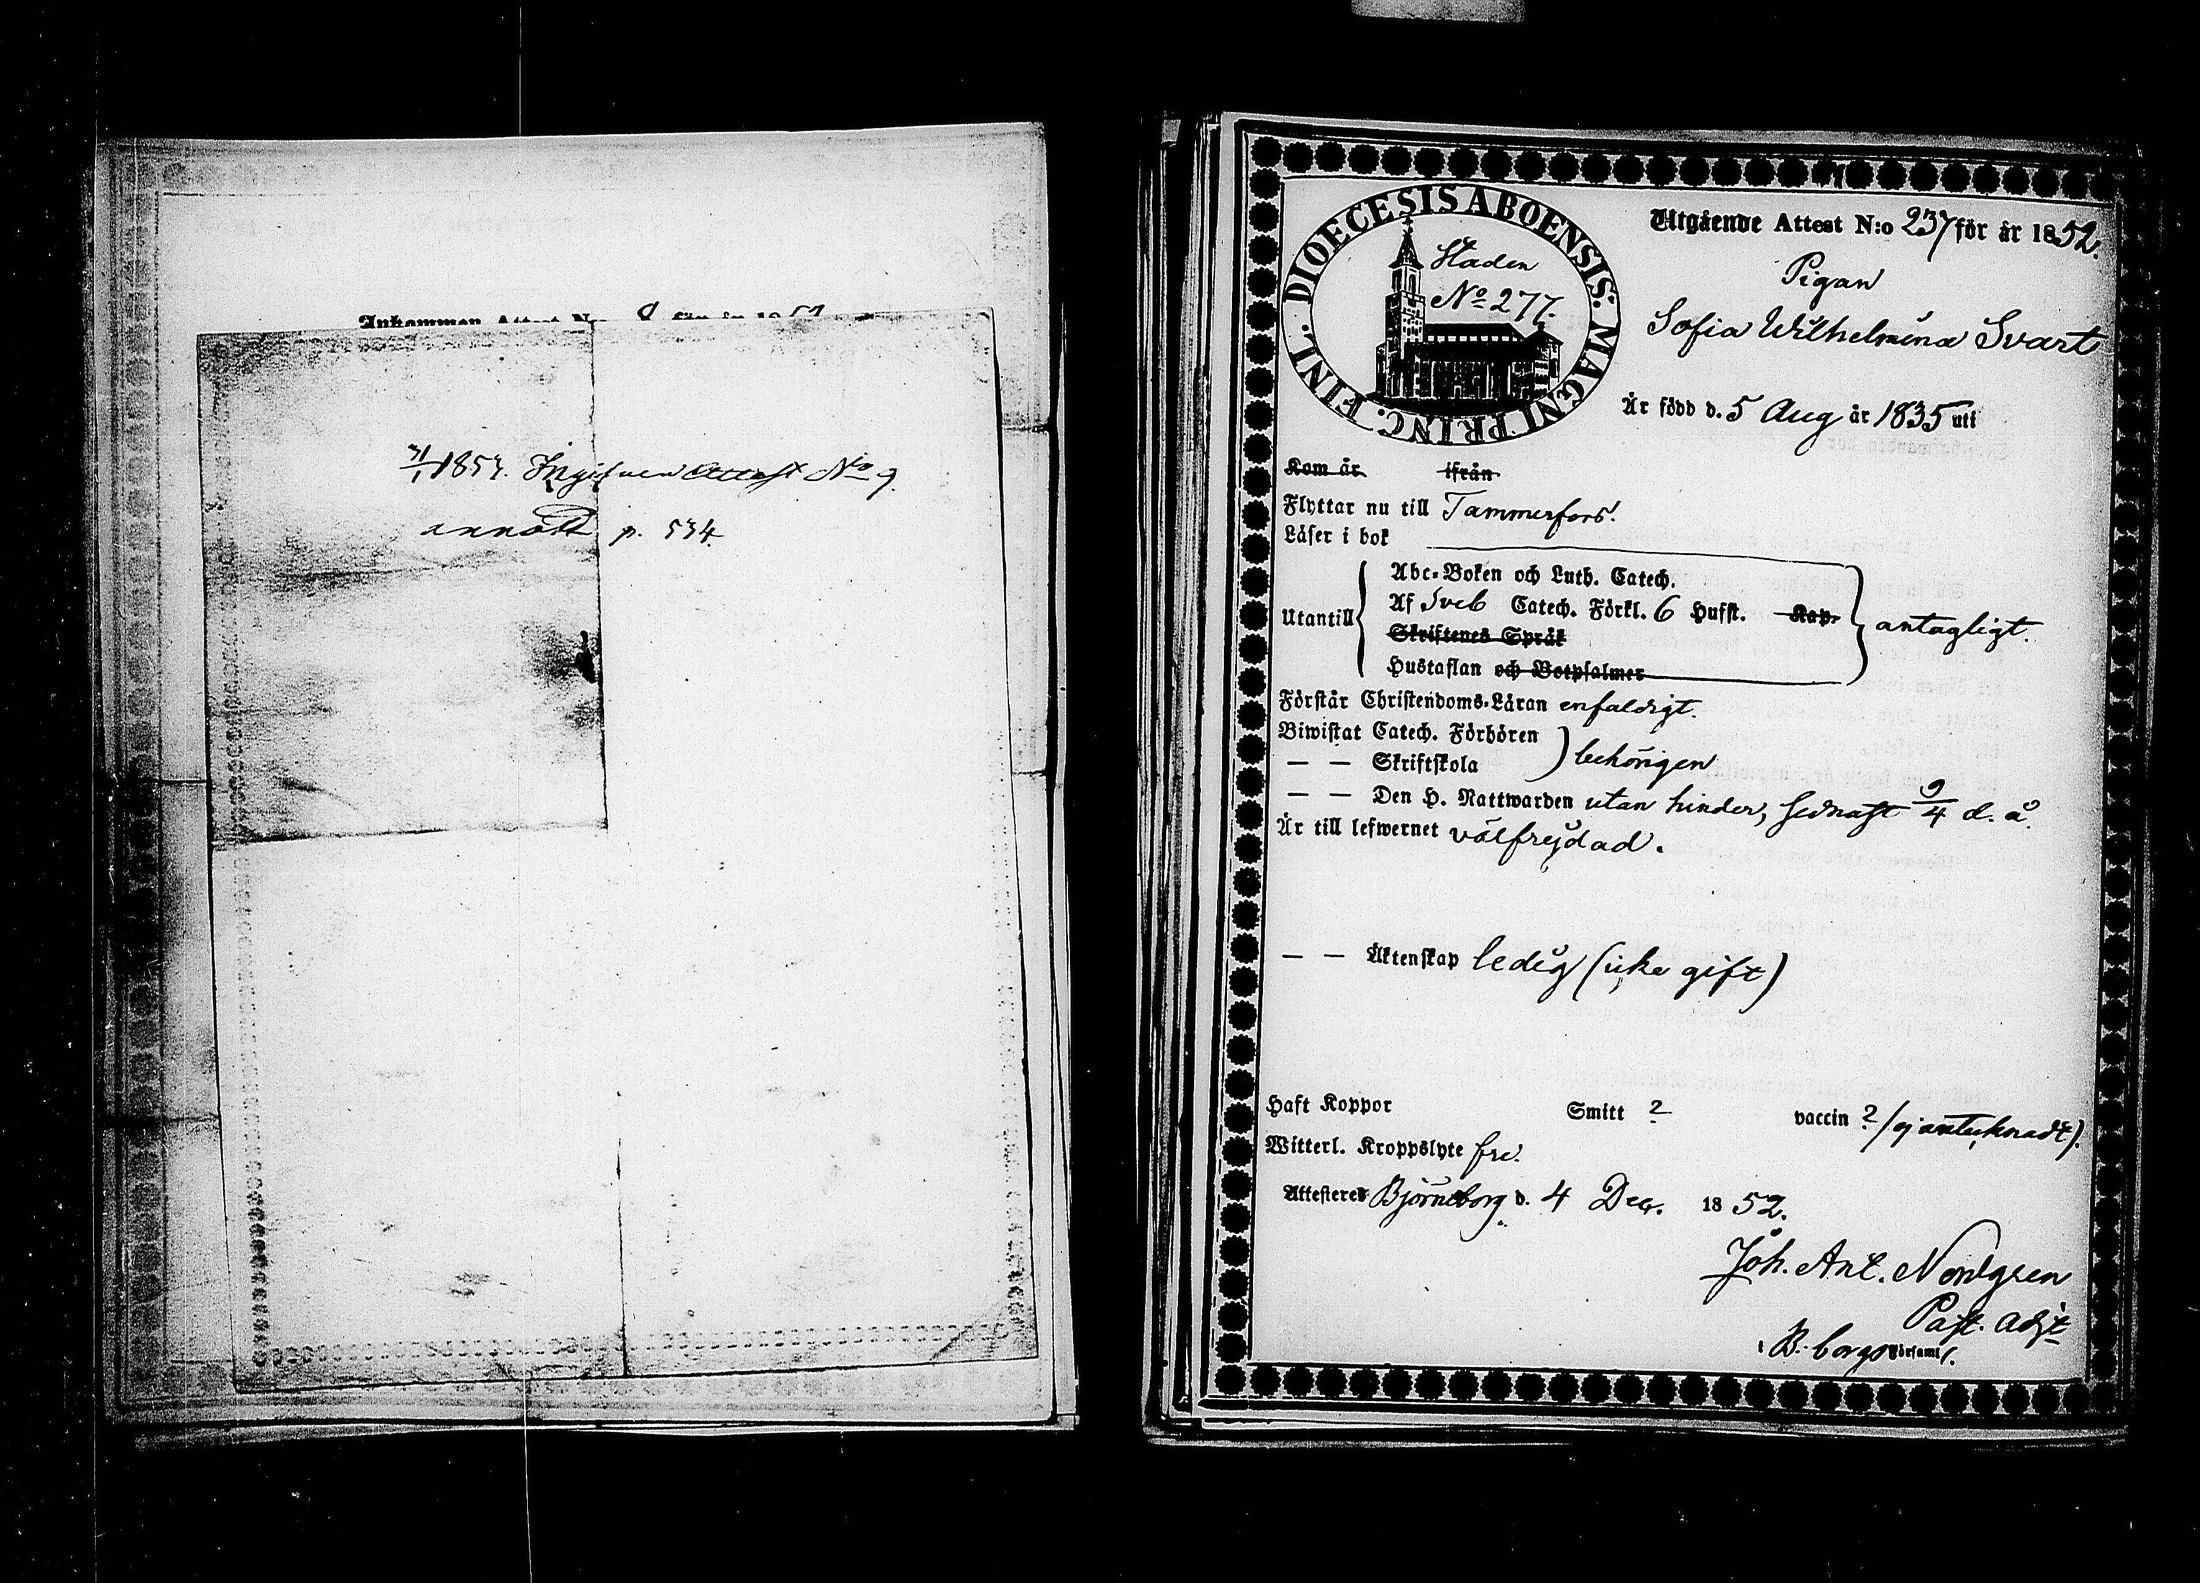 Inkommen Attest N:o 8 för år 18
31/1 1853. Ingifven Attest No 9.
annott p. 534.
DIOECESIS ABOENSIS. MAGNI PRINC. FINL.
Staden
No 277.
Utgående Attest N:o 237 för år 1852.
Pigan
Sofia Wilhelmina Svart
Är född d. 5 Aug år 1835 uti
Kom år ifrån
Flyttar nu till Tammerfors.
Läser i bok
Utantill
Abc-Boken och Luth. Catech.
Af Sveb Catech. Förkl. 6 Hufst. Kap.
Skriftenes Språk
Hustaflan och Botpsalmer
antagligt.
Förstår Christendoms-Läran enfaldigt.
Biwistat Catech. Förhören
— — Skriftskola
behörigen
— — Den H. Nattwarden utan hinder, sednast 9/4 d. å.
Är till lefwernet välfrejdad.
— — Äktenskap ledig (icke gift)
Haft Koppor Smitt ? vaccin ? (ej antecknadt).
Witterl. Kroppslyte fri.
Attesteres Björneborg d. 4 Dec. 1852.
Joh. Ant. Nordgren
Past. Adjt
i B.borgs Församl.